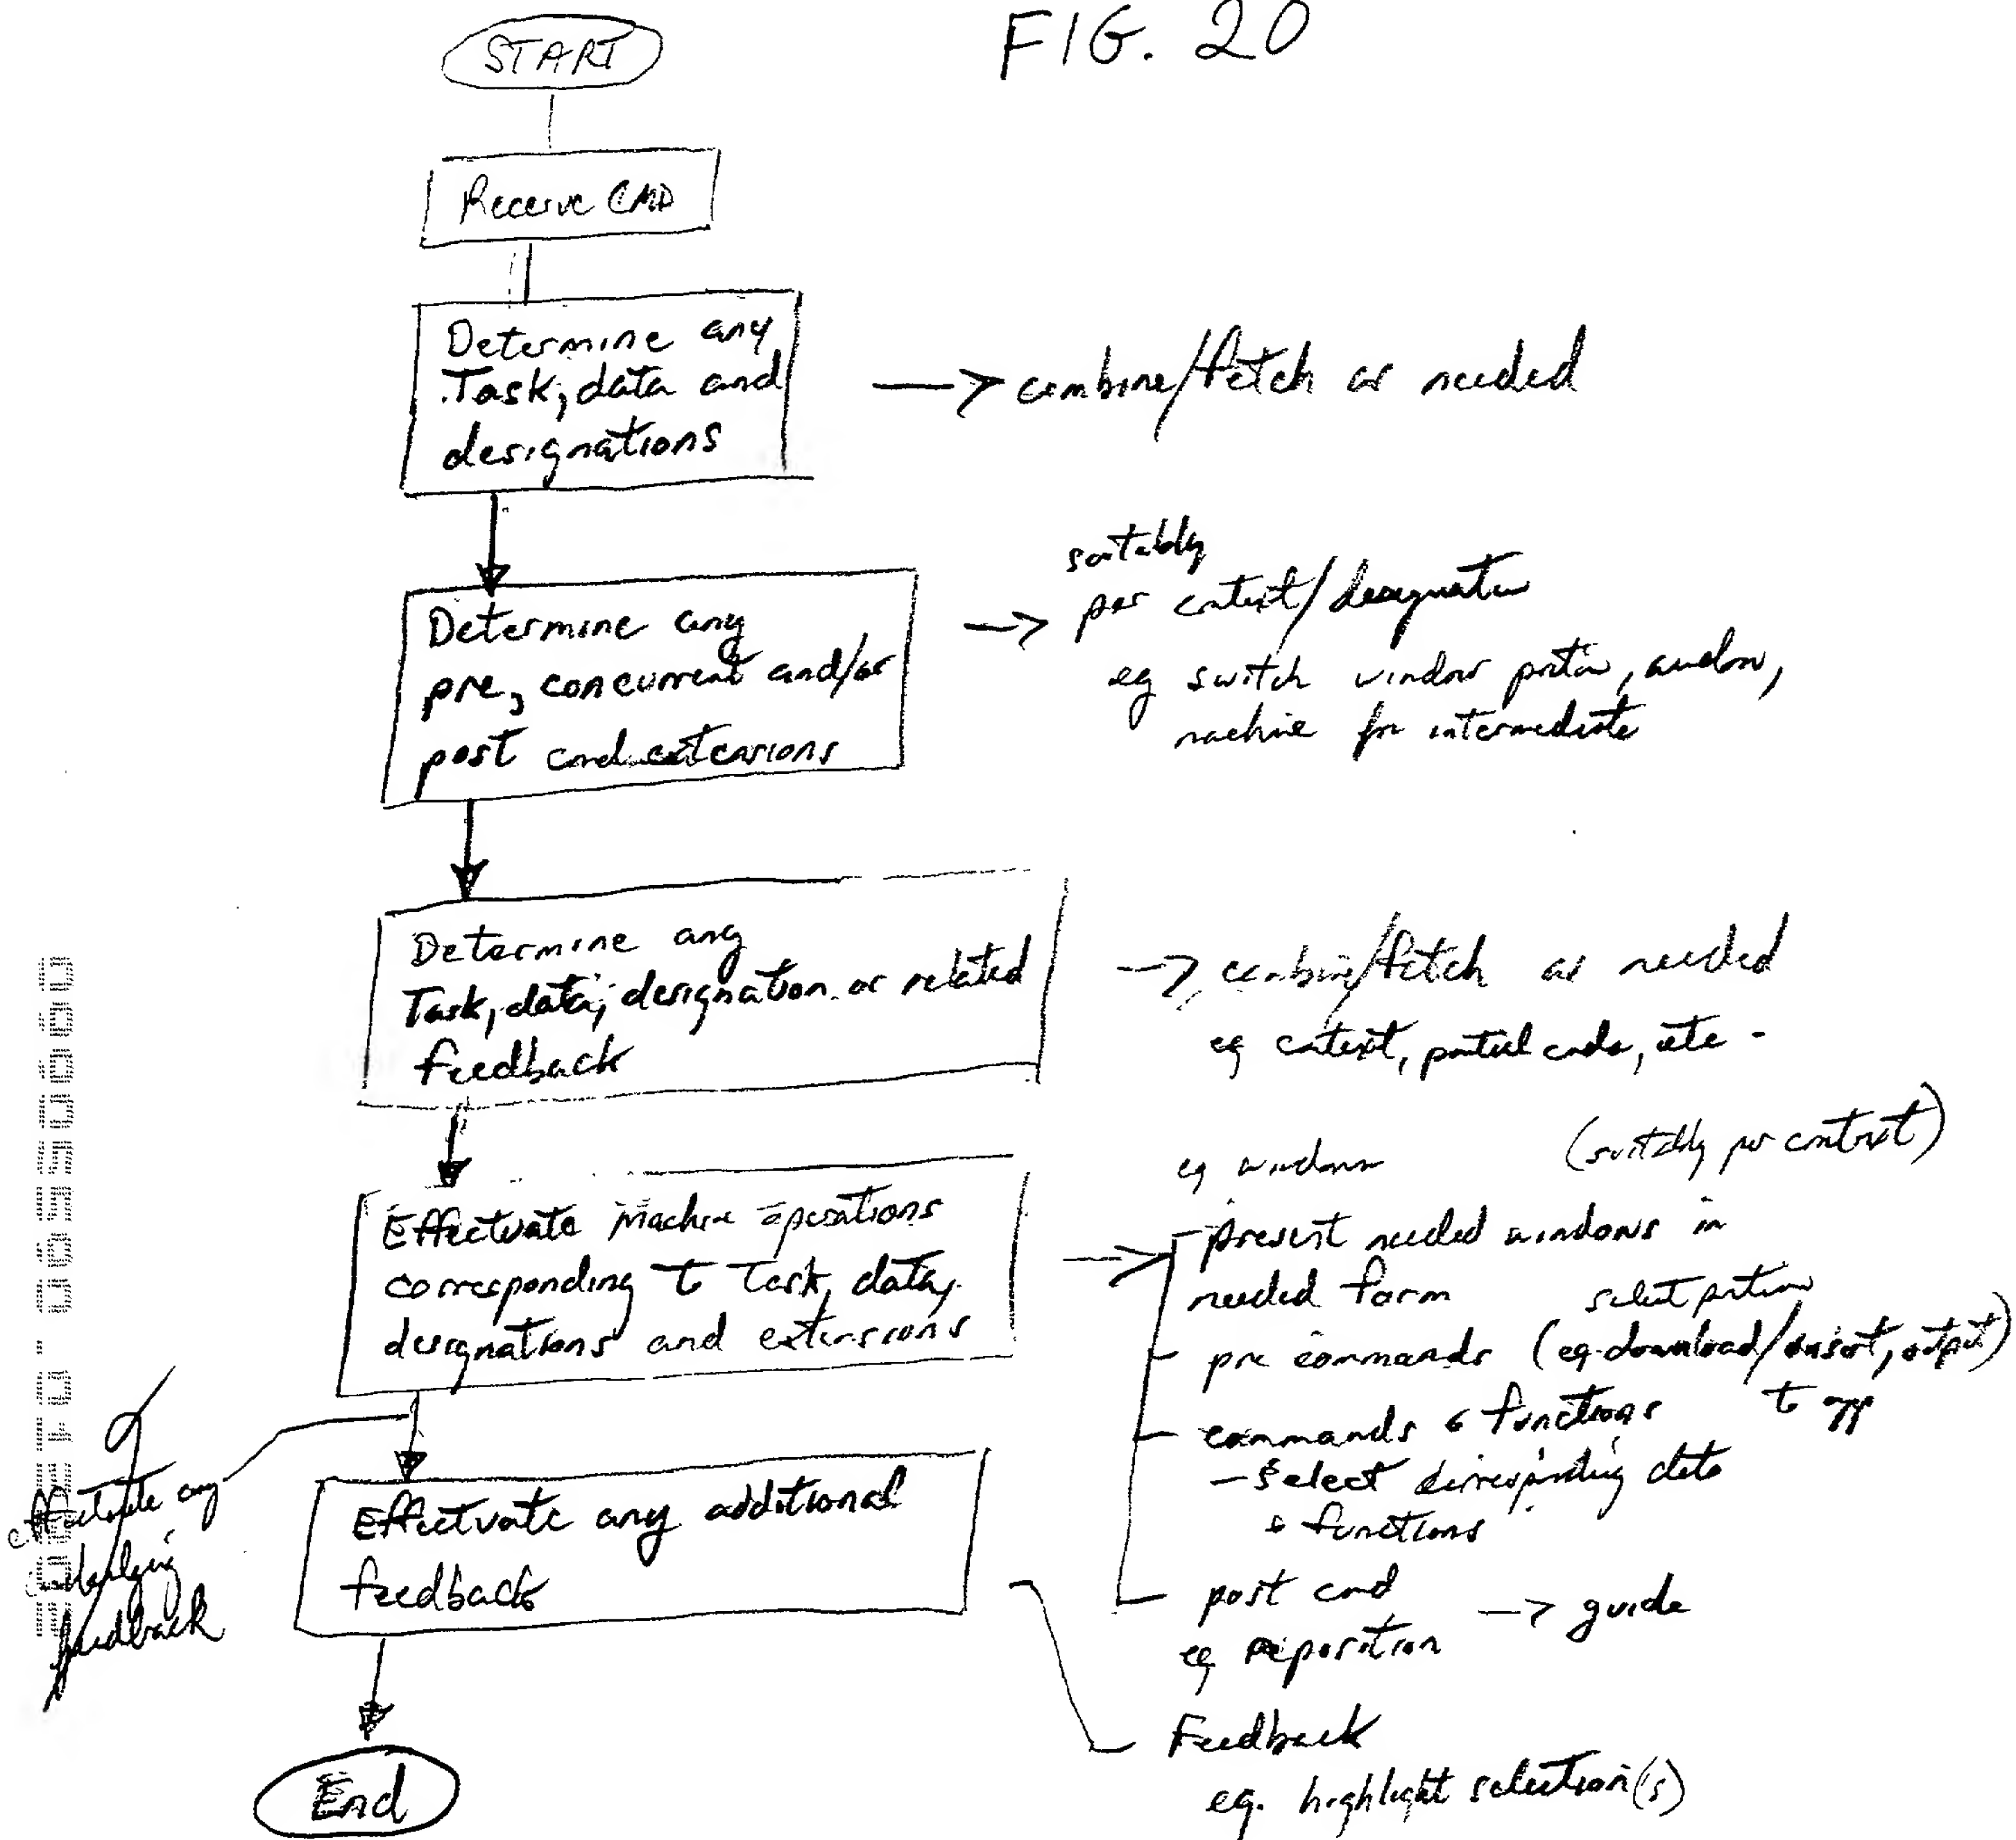 FIG. 20
START
Receive CMD
Determine any
Task, data and
designations
→ combine/fetch as needed
Determine any
pre, concurrent and/or
post cmd extensions
suitably
→ per context/designation
eg switch window portion, window,
machine for intermediate
Determine any
Task, data, designation or related
feedback
→ combine/fetch as needed
eg context, partial cmds, etc -
Effectuate Machine operations
corresponding to Task, data,
designations and extensions
eg windows (suitably per context)
- present needed windows in
needed form
select portion
- pre commands (eg. download/insert, output)
to
- commands & functions
- select corresponding data
& functions
- post cmd → guide
eg reposition
effectuate any
feedback
Effectuate any additional
feedback
Feedback
eg. highlight selection(s)
End